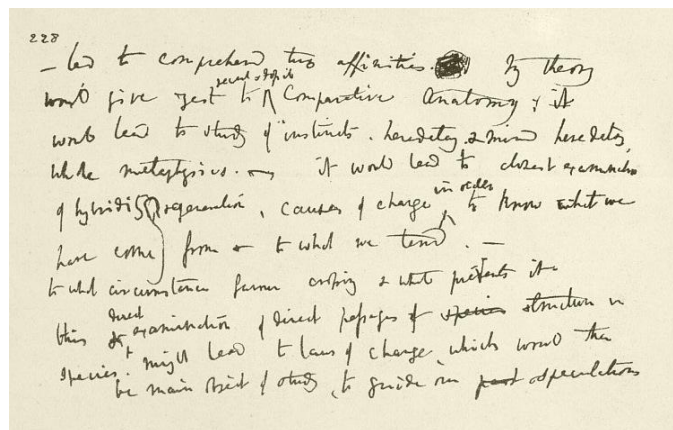 228
— led to comprehend true affinities. My theory
would give zest to recent & fossil Comparative Anatomy, & it
would lead to study of instincts, heredetary & mind heredetary,
whole metaphysics. — it would lead to closest examination
of hybridity regeneration, causes of change in order to know what we
have come from & to what we tend. —
to what circumstances favour crossing & what prevents it —
this & direct examination of direct passages of species structure in
species. might lead to laws of change, which would then
be main object of study, to guide our past speculations